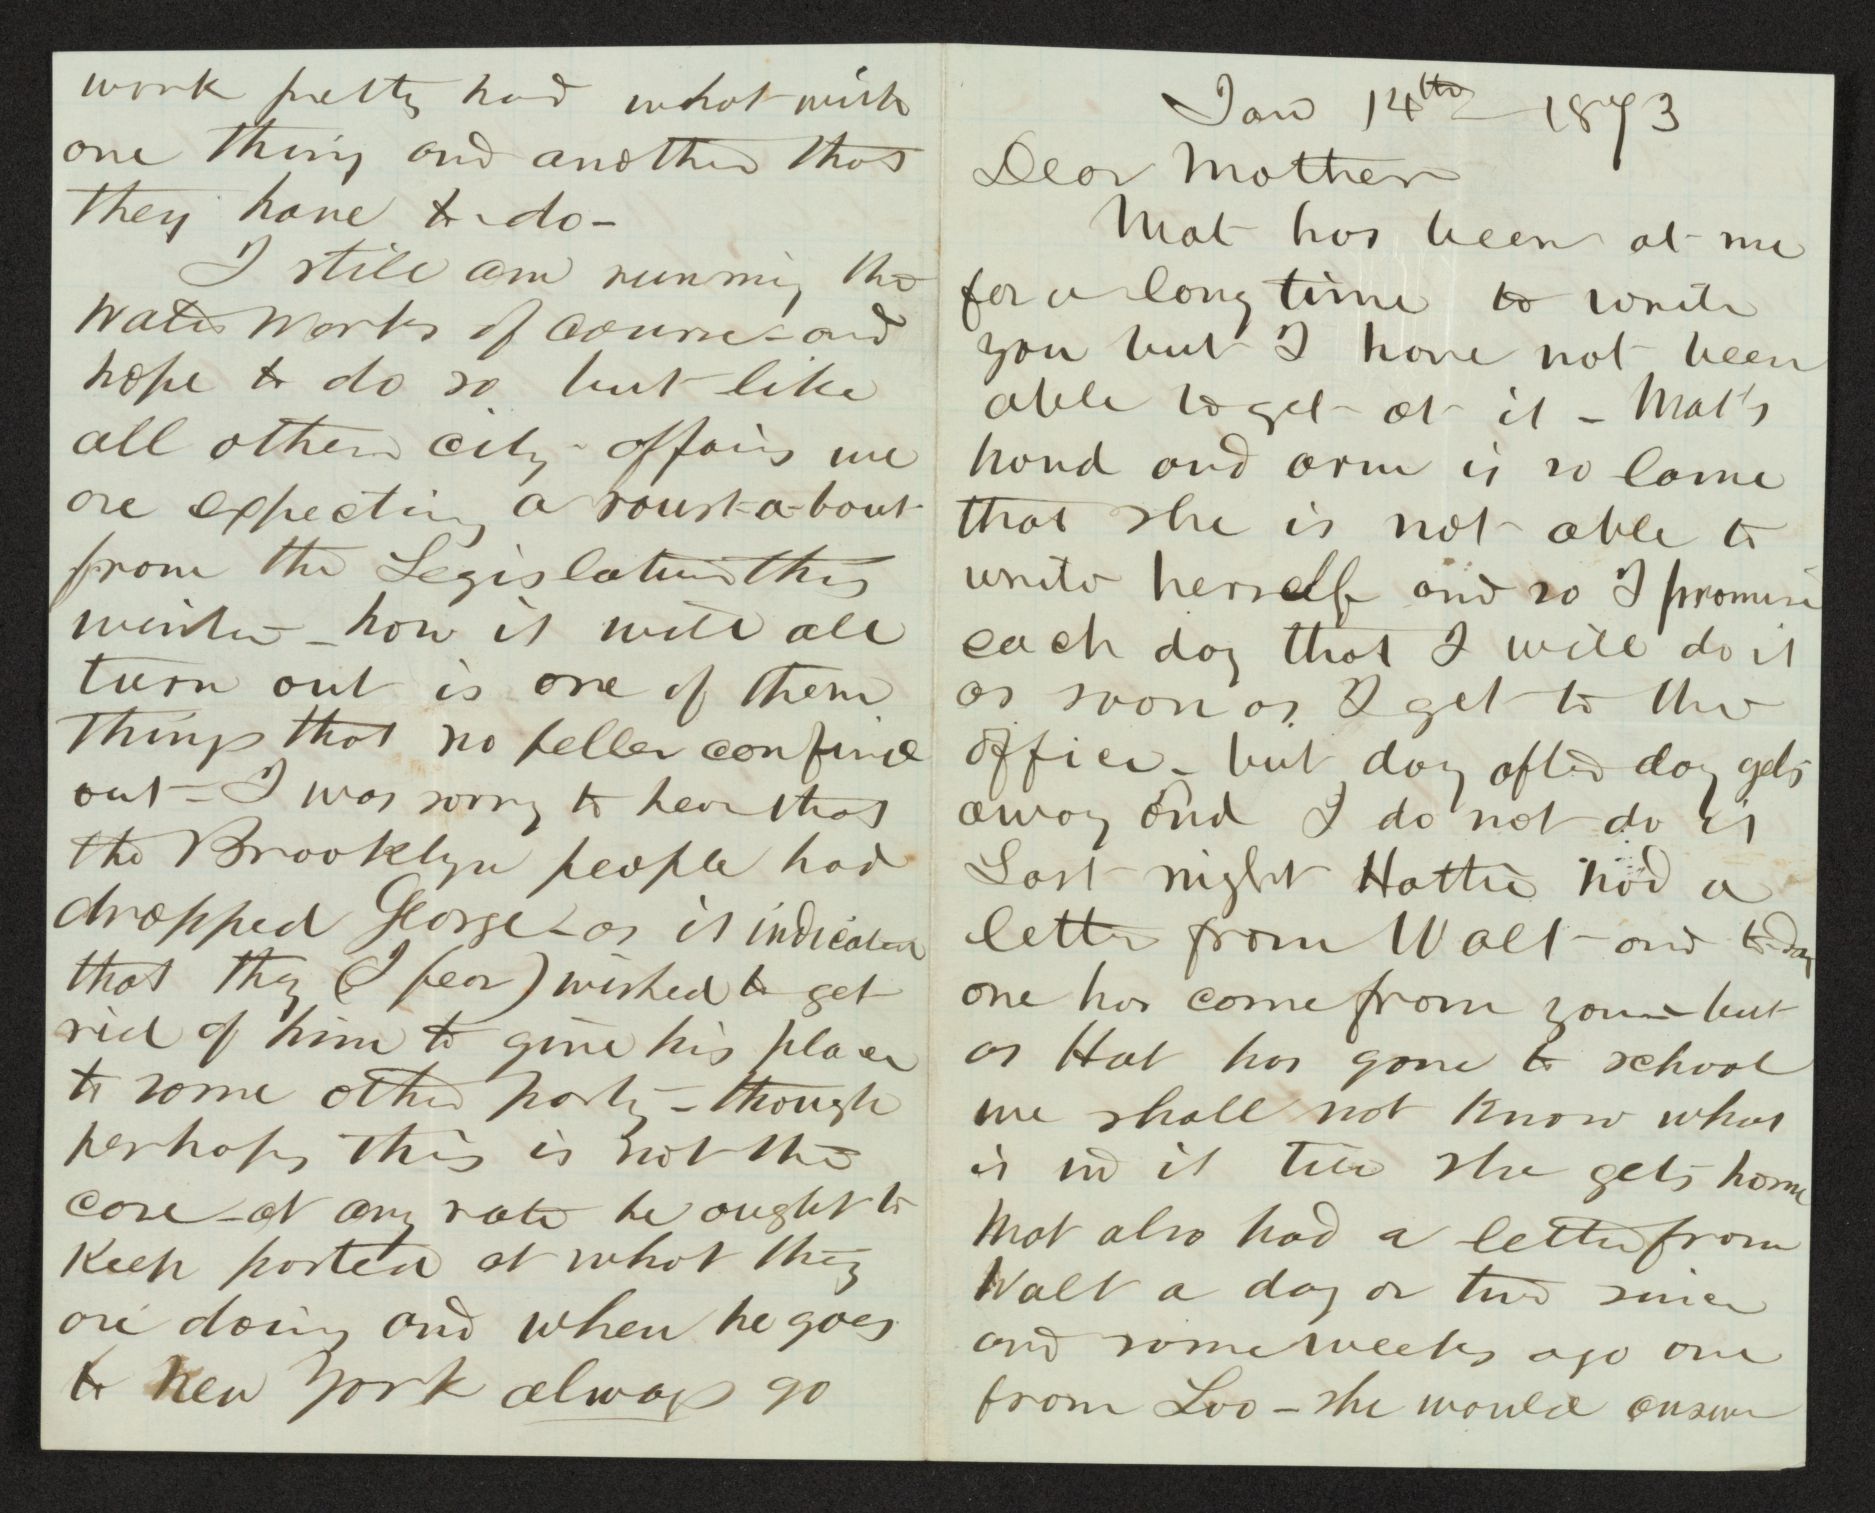 Jan 14th 1873
Dear Mother
Mat has been at me
for a long time to write
you but I have not been
able to get at it – Mat's
hand and arm is so lame
that she is not able to
write herself and so I promise
each day that I will do it
as soon as I get to the
office – but day after day gets
away and I do not do it
Last night Hattie had a
letter from Walt – and to-day
one has come from you – but
as Hat has gone to school
we shall not know what
is in it till she gets home
Mat also had a letter from
Walt a day or two since
and some weeks ago one
from Loo – she would answer
work pretty hard what with
one thing and another that
they have to do –
I still am running the
Water Works of course – and
hope to do so but like
all other city affairs we
are expecting a roust-a-bout
from the Legislature this
winter – how it will all
turn out is one of them
things that no feller can find
out – I was sorry to hear that
the Brooklyn people had
dropped George – as it indicated
that they (I fear) wished to get
rid of him to give his place
to some other party – though
perhaps this is not the
case – at any rate he ought to
keep posted at what they
are doing and when he goes
to New York always go